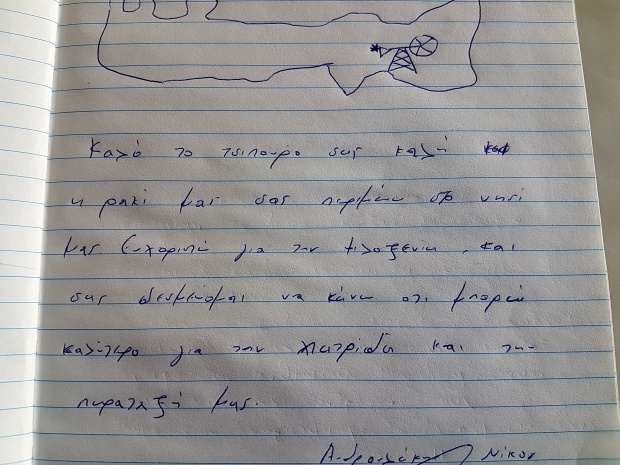 Καλό το τσίπουρο σας καλή
η ρακί μας σας περιμένω στο νησί
μας Ευχαριστώ για την φιλοξενία, και
σας δεσμεύομαι να κάνω ότι μπορώ
καλύτερο για την πατρίδα και την
παράταξή μας.
Ανδρουλάκης Νίκος